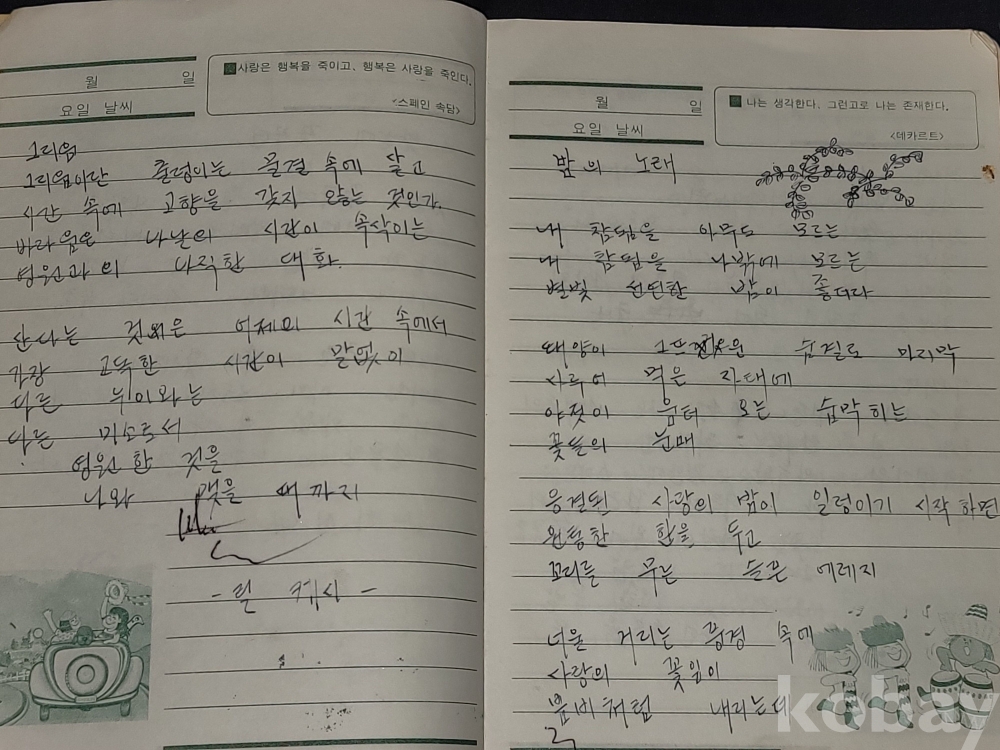 월 일
요일 날씨
사랑은 행복을 죽이고, 행복은 사랑을 죽인다.
<스페인 속담>
그리움
그리움이란 출렁이는 물결 속에 살고
시간 속에 고향을 갖지 않는 것인가.
바라움은 나날의 시간이 속삭이는
영원과의 나직한 대화.
산다는 것은 어제의 시간 속에서
가장 고독한 시간이 말없이
다른 누이와는
다른 미소로서
영원한 것을
나와 맺을 때까지
- 릴케시 -
월 일
요일 날씨
나는 생각한다. 그런고로 나는 존재한다.
<데카르트>
밤의 노래
내 참됨을 아무도 모르는
내 참됨을 나밖에 모르는
별빛 선연한 밤이 좋더라
태양이 숨결로 마지막
사루어 먹은 자태에
야젓이 움터 오는 숨막히는
꽃들의 눈매
응결된 사랑의 밤이 일렁이기 시작하면
완당한 함을 두고
꼬리를 무는 슬픈 에레지
너울거리는 풍경 속에
사랑의 꽃잎이
봄비처럼 내리는데
kobay